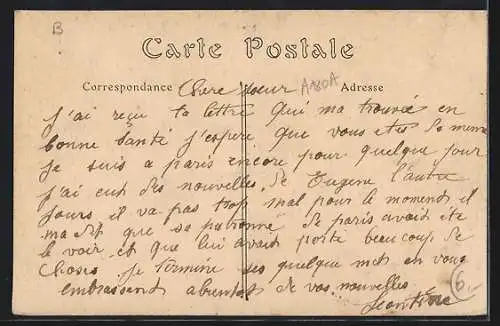 B
Carte Postale
Correspondance Chere soeur A180A Adresse
J'ai reçu ta lettre qui ma trouvée en
bonne santé j'espere que vous etes de meme
je suis a paris encore pour quelque jour
j'ai eut des nouvelles de Eugene l'autre
jours il va pas trop mal pour le moment il
ma dit que sa patronne de paris avait été
le voir et que lui avait porté beaucoup de
choses je termine ses quelque mot en vous
embrassent de vos nouvelles
6.-